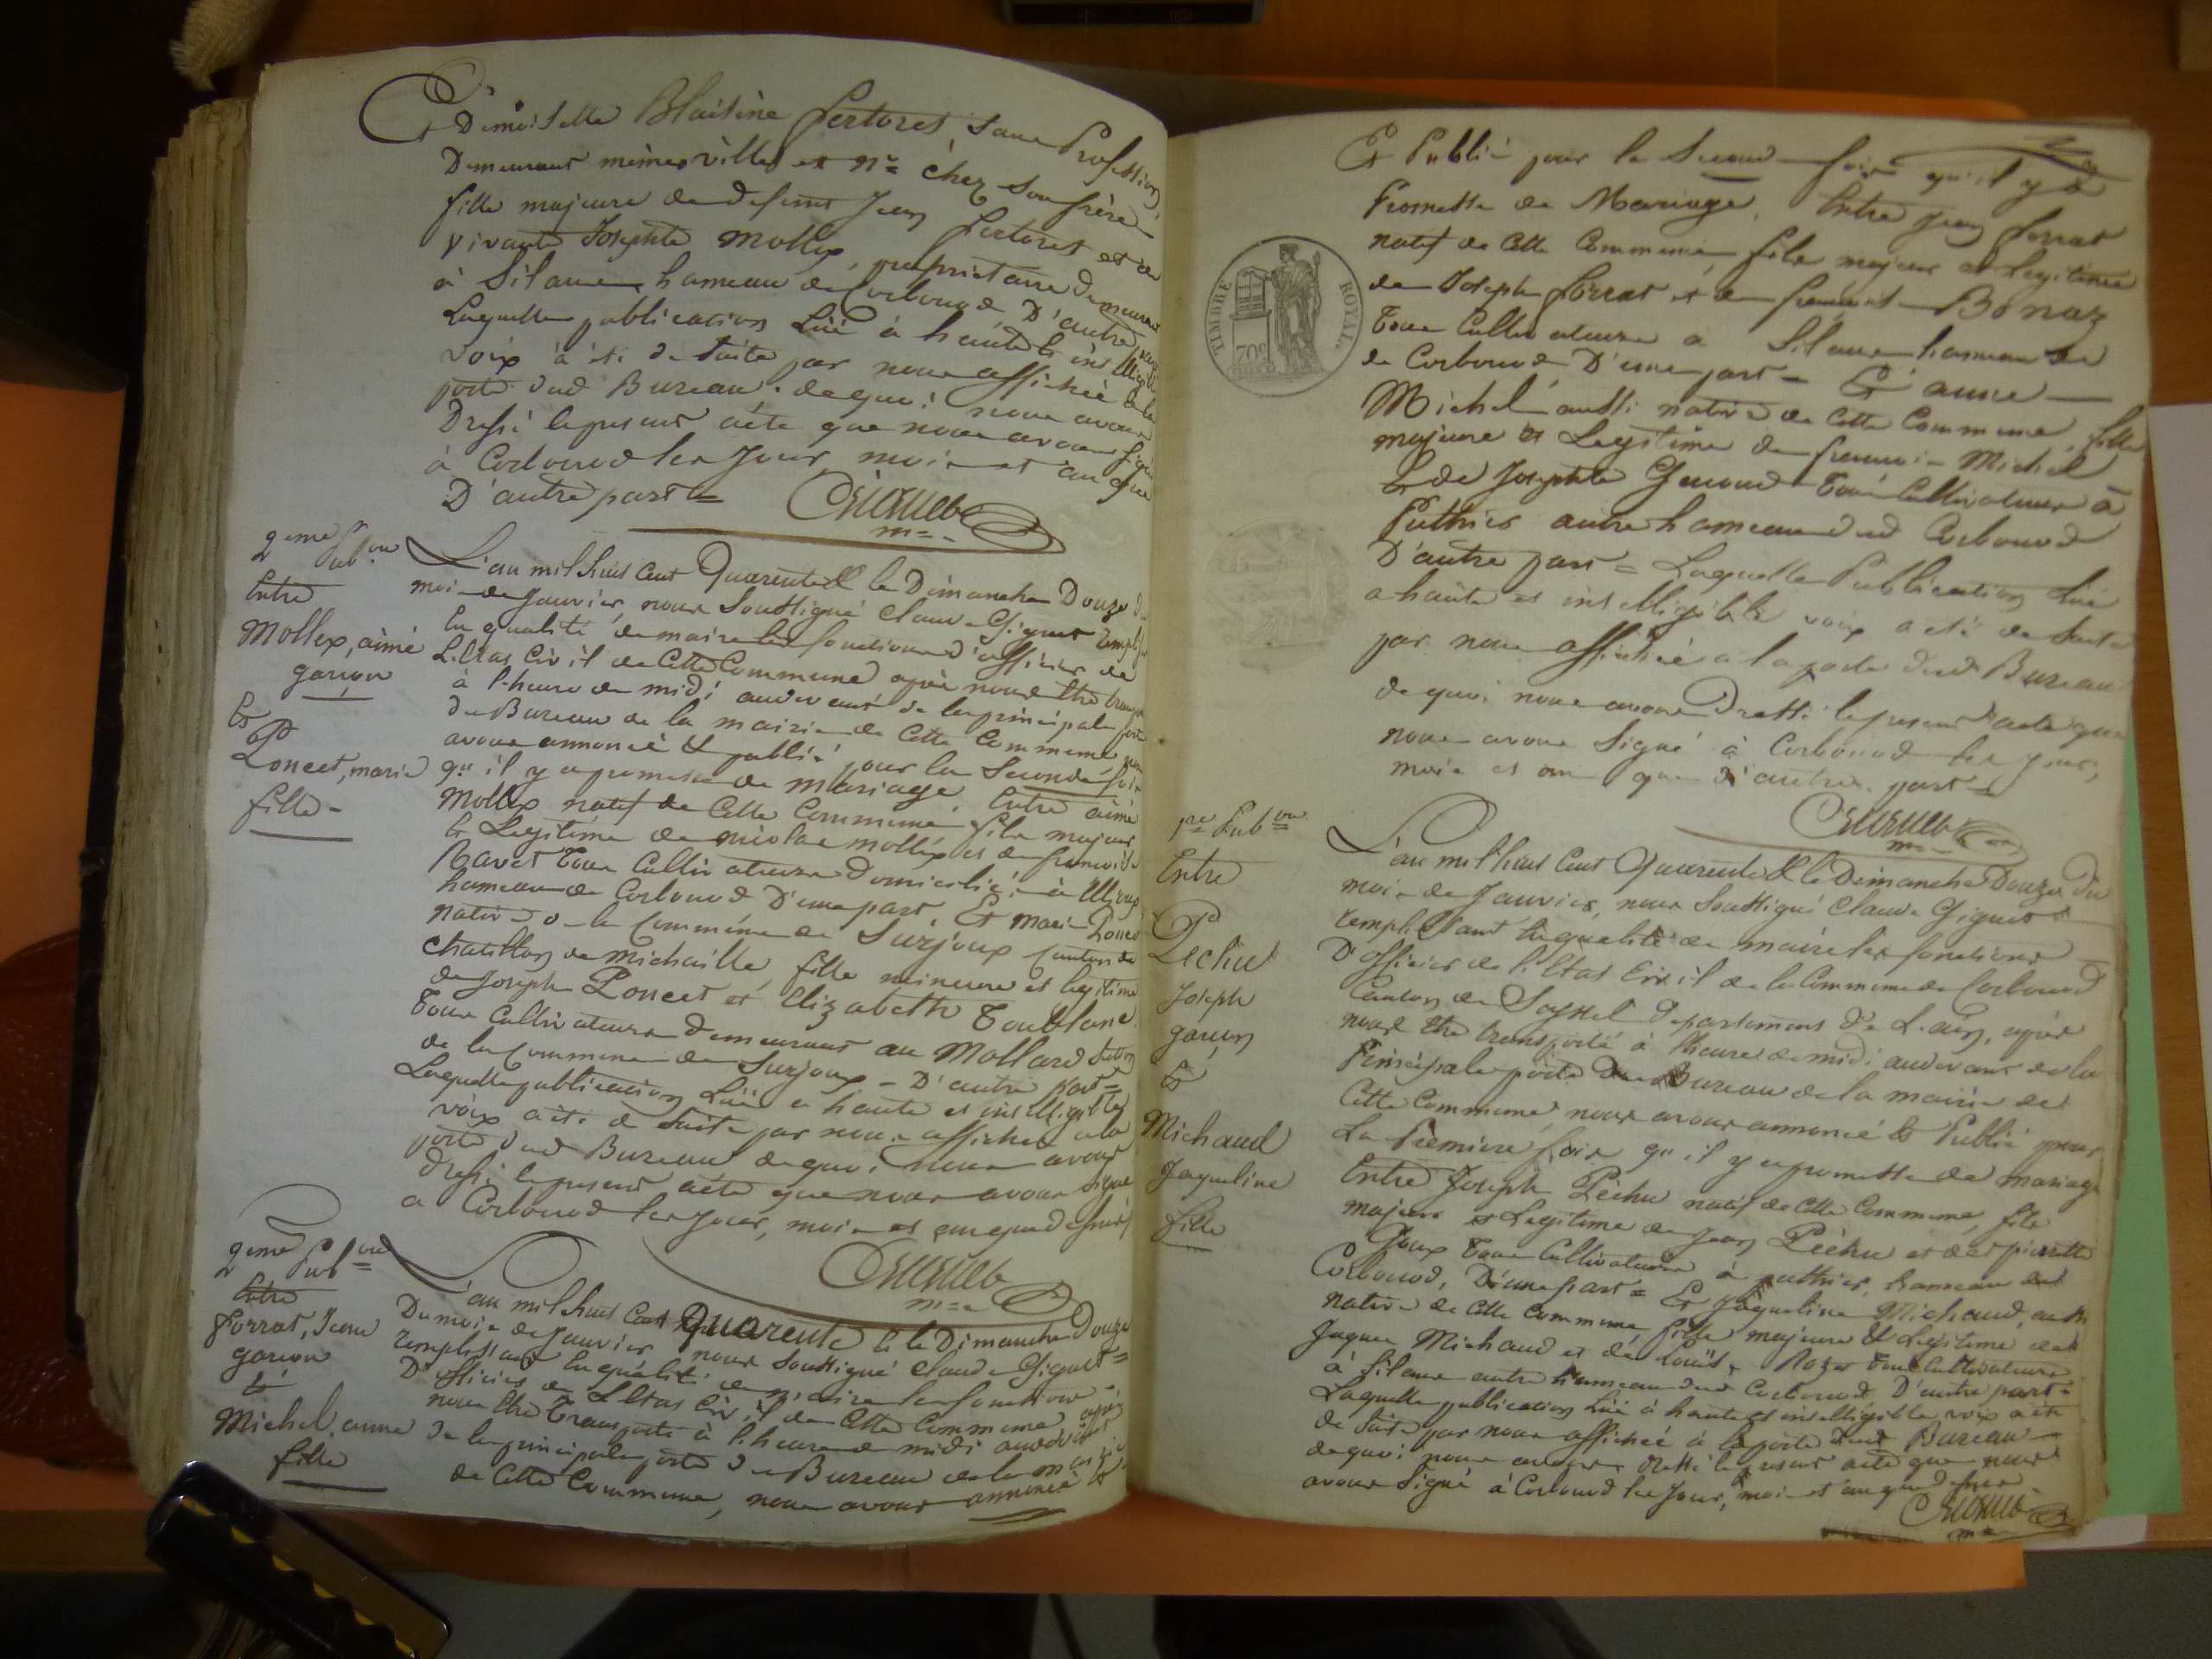 Et Demoiselle Blaisine fertoret sans Profession,
Demeurant mêmes ville et n° chez son frère
fille majeure de defunt Jean fertoret et de
vivante Josephte Mollex, proprietaire demeurant
à Silans hameau de Corbonod D'autre part
Laquelle publication Lüe à haute & intelligible
voix à été de suite par nous affichée à la
porte dud Bureau. de quoi nous avons
Dressé le present acte que nous avons signé
à Corbonod les jour, mois et an que
D'autre part =
2eme Pub.on
Entre
Mollex, aimé
garçon
&
Poncet, marie
fille
L'an mil huit cent Quarente & le Dimanche Douze du
mois de Janvier, nous Soussigné Claude Giguet remplissant
En qualité de maire les fonctions d'officier de
L'Etat Civil de Cette Commune après nous être transporté
à l'heure de midi audevant de la principale porte
du Bureau de la mairie de Cette Commune, nous
avons annoncé & publié pour la Seconde fois
qu'il y a promesse de mariage. Entre aimé
Mollex natif de Cette Commune fils majeur
& Legitime de nicolas mollex et de francoise
Ravet Tous Cultivateurs domicilié à
hameau de Corbonod D'une part. Et marie Poncet
native de la Commune de Surjoux canton de
Chatillon de Michaille, fille mineure et legitime
de Joseph Poncet et Elizabeth Toublanc
Tous Cultivateurs demeurant au Mollard section
de la Commune de Surjoux - D'autre part =
Laquelle publication Lüe à haute et intelligible
voix a été de suite par nous affichée a la
porte dud Bureau de quoi nous avons
dressé le present acte que nous avons signé
a Corbonod les jour, mois et an que dessus
2eme Pub.on
Entre
Forrat, Jean
garçon
&
Michel, anne
fille
L'an mil huit Cent Quarente & le Dimanche Douze
Du mois de Janvier nous Soussigné Claude Giguet =
remplissant En qualité de maire les fonctions
D'officier de L'Etat Civil de Cette Commune après
nous être transporté à l'heure de midi audevant
de la principale porte du Bureau de la mairie
de Cette Commune, nous avons annoncé &
Et Publié pour la Seconde fois qu'il y a
Promesse de Mariage. Entre Jean forrat
natif de Cette Commune, fils majeur et Legitime
de Joseph forrat et de Bonaz
Tous Cultivateurs a Silans hameau de
de Corbonod D'une part = Et anne
Michel aussi native de Cette Commune, fille
majeure et Legitime de francois Michel
& de Josephte Genoud Tous Cultivateurs à
Puthier autre hameau dud Corbonod
D'autre part = Laquelle Publication Lüe
a haute et intelligible voix a été de Suite
par nous affichée a la porte dud Bureau
de quoi nous avons Dressé le present acte que
nous avons Signé à Corbonod les jour,
mois et an que d'autre part =
TIMBRE ROYAL
70c
1re Pub.on
Entre
Pechu
Joseph
garçon
&
Michaud
Jaqueline
fille
L'an mil huit Cent Quarente & le Dimanche Douze Du
mois de Janvier, nous Soussigné Claude Giguet
remplissant En qualité de maire les fonctions
D'officier de l'Etat Civil de la Commune de Corbonod
Canton de Seyssel Departement De L'ain, après
nous être transporté à l'heure de midi audevant de la
Principale porte du Bureau de la mairie de
Cette Commune, nous avons annoncé & Publié pour
La Premiere fois qu'il y a promesse de mariage
Entre Joseph Pèchu natif de Cette Commune, fils
majeur et Legitime de Jean Pèchu et de pierrette
Goux Tous Cultivateurs à puthier, hameau dud
Corbonod, D'une part = Et Jaqueline Michaud, aussi
native de Cette Commune fille majeure & Legitime de
Jaques Michaud et de Louise Rozet Tous Cultivateurs
à Silans autre hameau dud Corbonod D'autre part =
Laquelle publication Lüe à haute et intelligible voix a été
de suite par nous affichée à la porte dud Bureau
de quoi nous avons dressé le present acte que nous
avons Signé à Corbonod les jour, mois et an que dessus